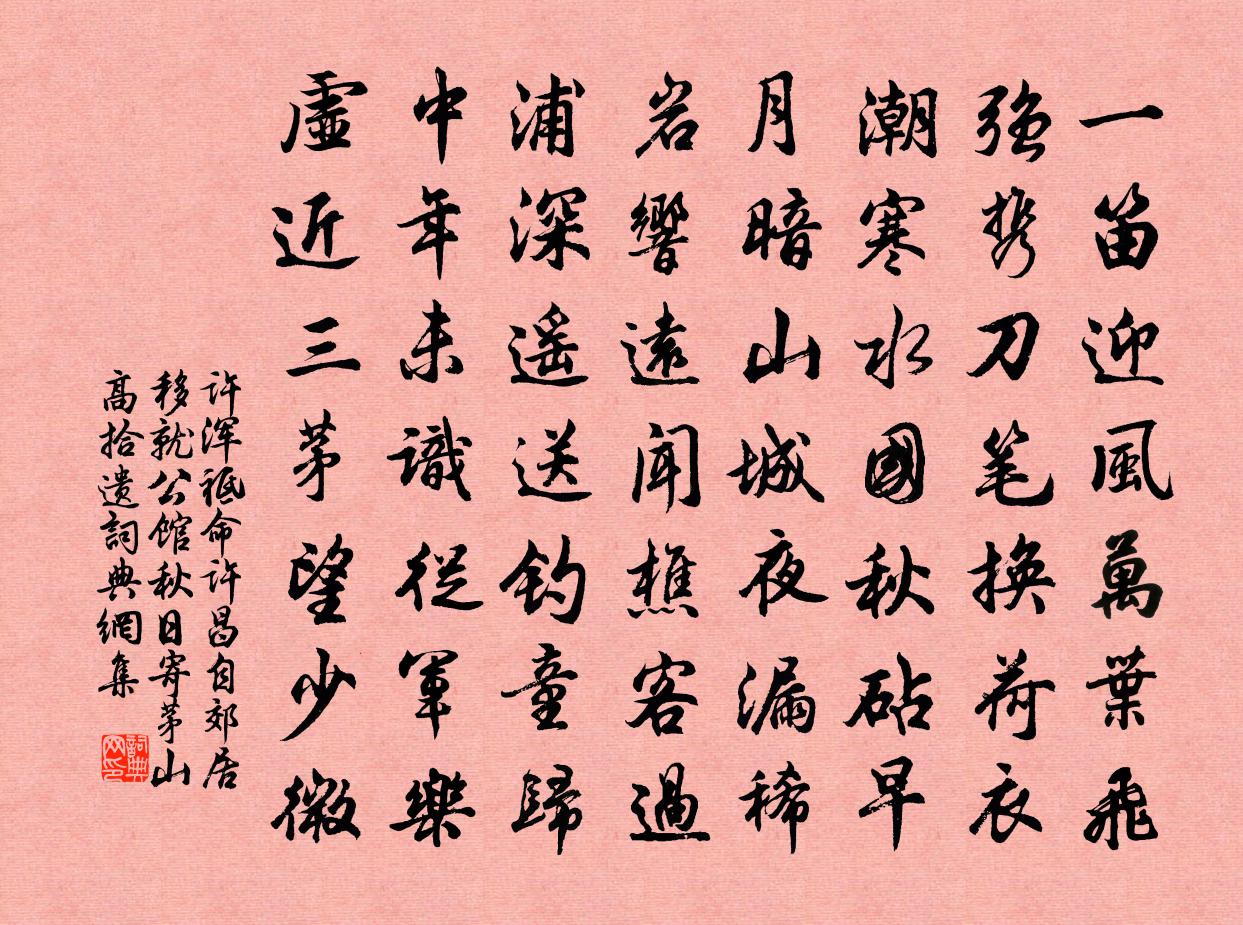 一笛迎風萬葉飛
强携刀笔換荷衣
潮寒水國秋砧早
月暗山城夜漏稀
岩響遠聞樵客過
浦深遥送钓童歸
中年未識從軍樂
虚近三茅望少微
许浑祗命许昌自郊居
移就公館秋日寄茅山
高拾遗詞典網集
詞典网印